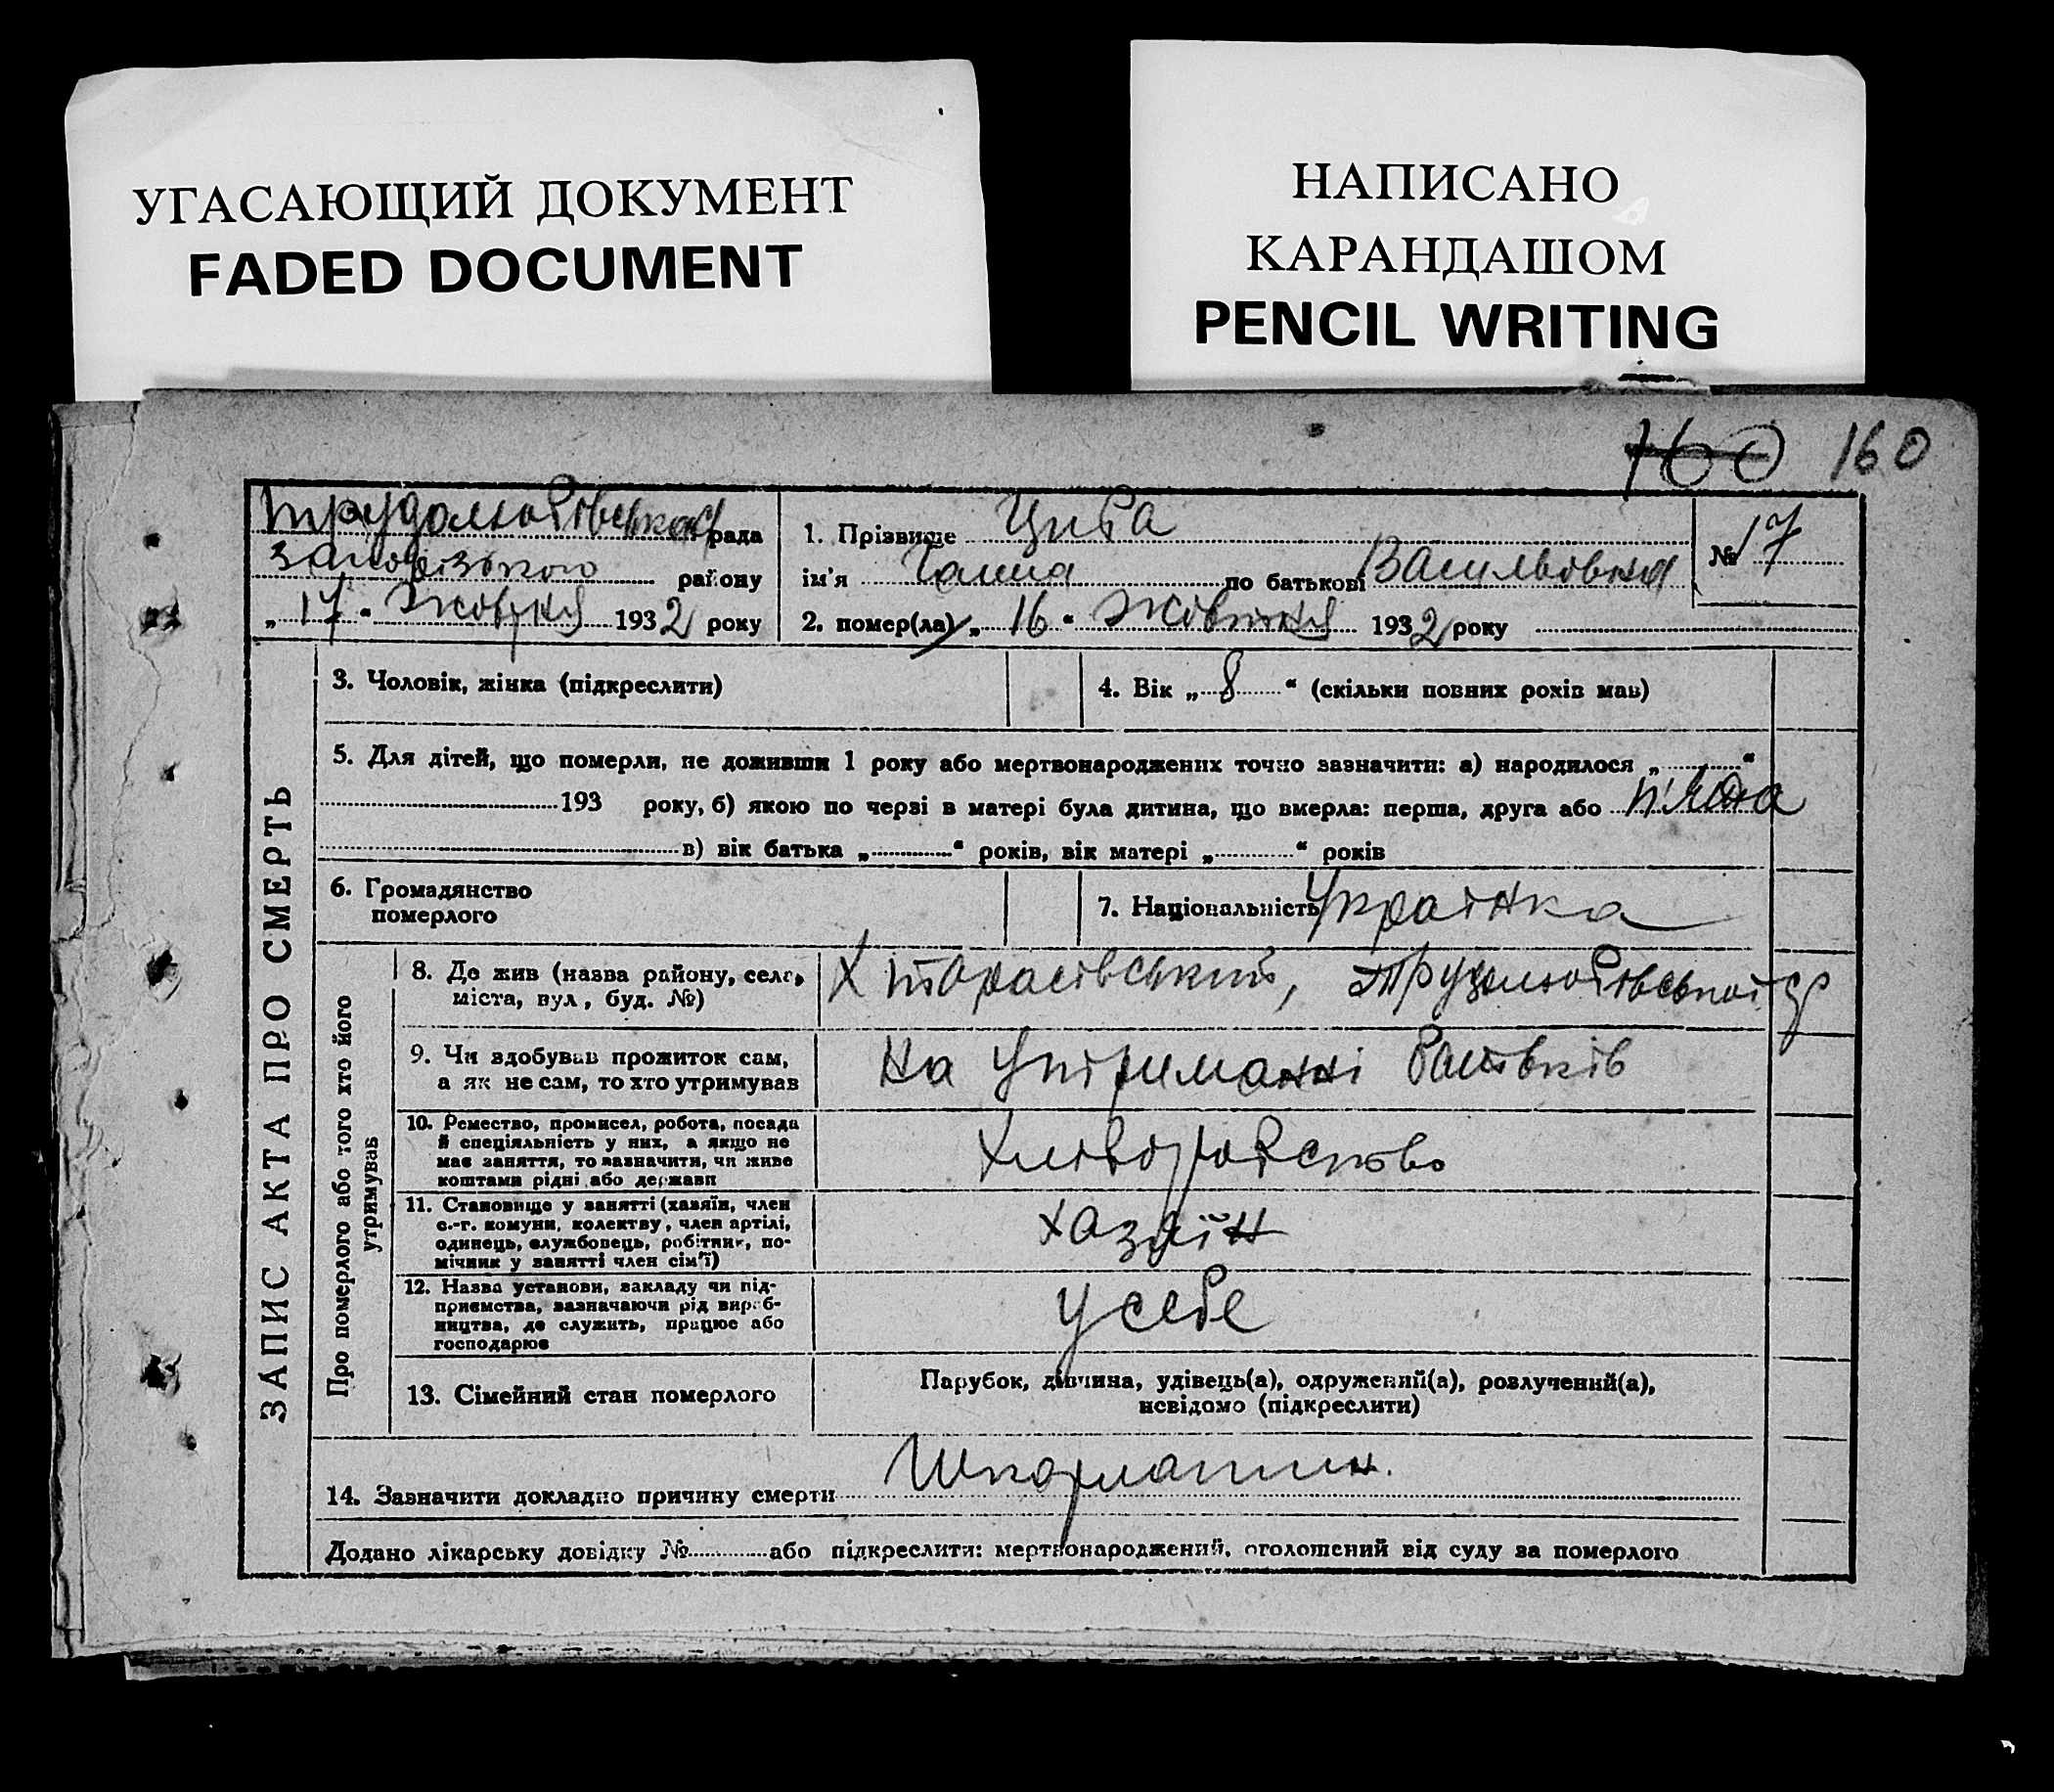 УГАСАЮЩИЙ ДОКУМЕНТ
FADED DOCUMENT
НАПИСАНО
КАРАНДАШОМ
PENCIL WRITING
160 160
Трудолюбівської рада
району
„ 17 “ Жовтня 1932 року
1. Прізвище Циба
ім'я Ганна по батькові Васильовна
2. помер(ла) „ 16 “ Жовтня 1932 року
№ 17
ЗАПИС АКТА ПРО СМЕРТЬ
3. Чоловік, жінка (підкреслити)
4. Вік „ 8 “ (скільки повних років мав)
5. Для дітей, що померли, не доживши 1 року або мертвонароджених точно зазначити: а) народилося „ “
193 року, б) якою по черзі в матері була дитина, що вмерла: перша, друга або
в) вік батька „ “ років, вік матері „ “ років
6. Громадянство
померлого
7. Національність Українка
Про померлого або того хто його
утримував
8. Де жив (назва району, села,
міста, вул, буд. №)
Х Тарасівський, Трудолюбівської ср
9. Чи здобував прожиток сам,
а як не сам, то хто утримував
На утриманні батьків
10. Ремество, промисел, робота, посада
й спеціяльність у них, а якщо не
має заняття, то вазначити, чи живе
коштами рідні або держави
Хліборобство
11. Становище у занятті (хазяїн, член
с.-г. комуни, колективу, член артілі,
одинець, службовець, робітник, по-
мічник у занятті член сім'ї)
хазяїн
12. Назва установи, закладу чи під-
приємства, зазначаючи рід вироб-
ництва, де служить, працює або
господарює
у себе
13. Сімейний стан померлого
Парубок, дівчина, удівець(а), одружений(а), розлучений(а),
невідомо (підкреслити)
14. Зазначити докладно причину смерти Шкарлатин.
Додано лікарську довідку № або підкреслити: мертвонароджений, оголошений від суду за померлого